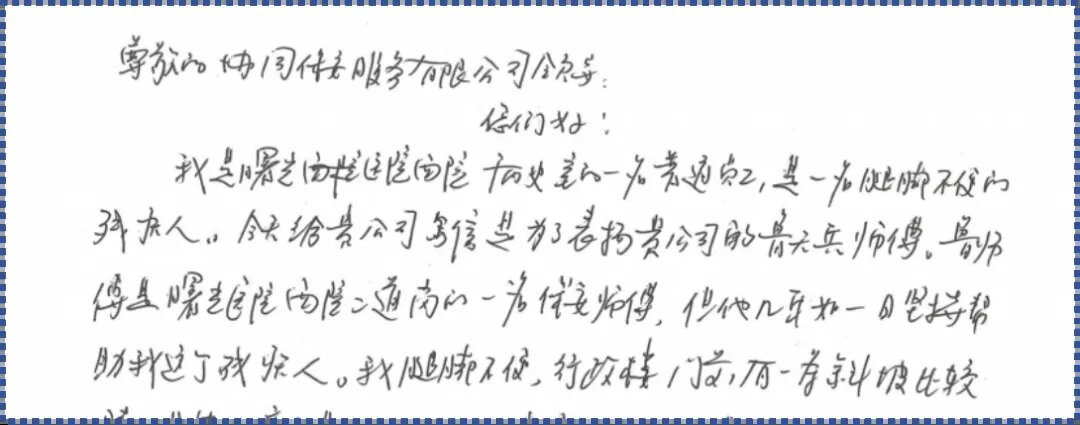 尊敬的协同保安服务有限公司领导:
您们好!
我是曙光医院西院病史室的一名普通员工,是一名腿脚不便的
残疾人。今天给贵公司写信是为了表扬贵公司的鲁天兵师傅。鲁师
傅是曙光医院西院二道岗的一名保安师傅,但他几年如一日坚持帮
助我这个残疾人。我腿脚不便,行政楼门前,有一条斜坡比较